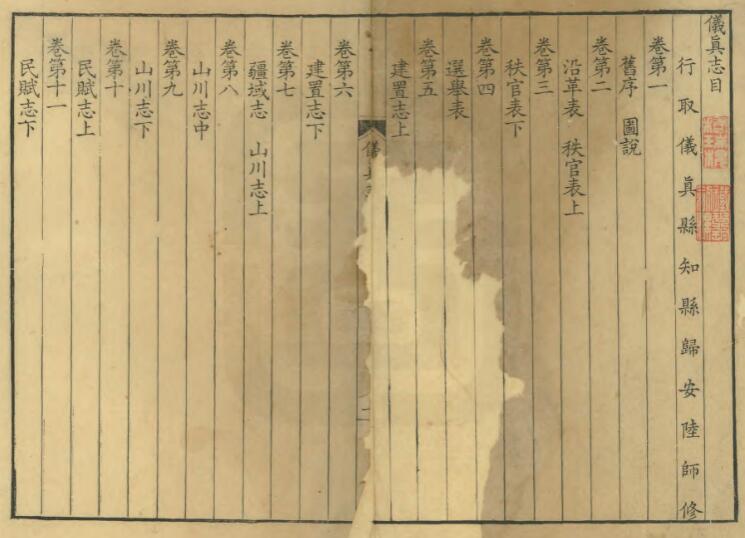 儀眞志目
行取儀眞縣知縣歸安陸師修
卷第一
舊序 圖說
卷第二
沿革表 秩官表上
卷第三
秩官表下
卷第四
選舉表
卷第五
建置志上
儀
卷第六
建置志下
卷第七
疆域志 山川志上
卷第八
山川志中
卷第九
山川志下
卷第十
民賦志上
卷第十一
民賦志下